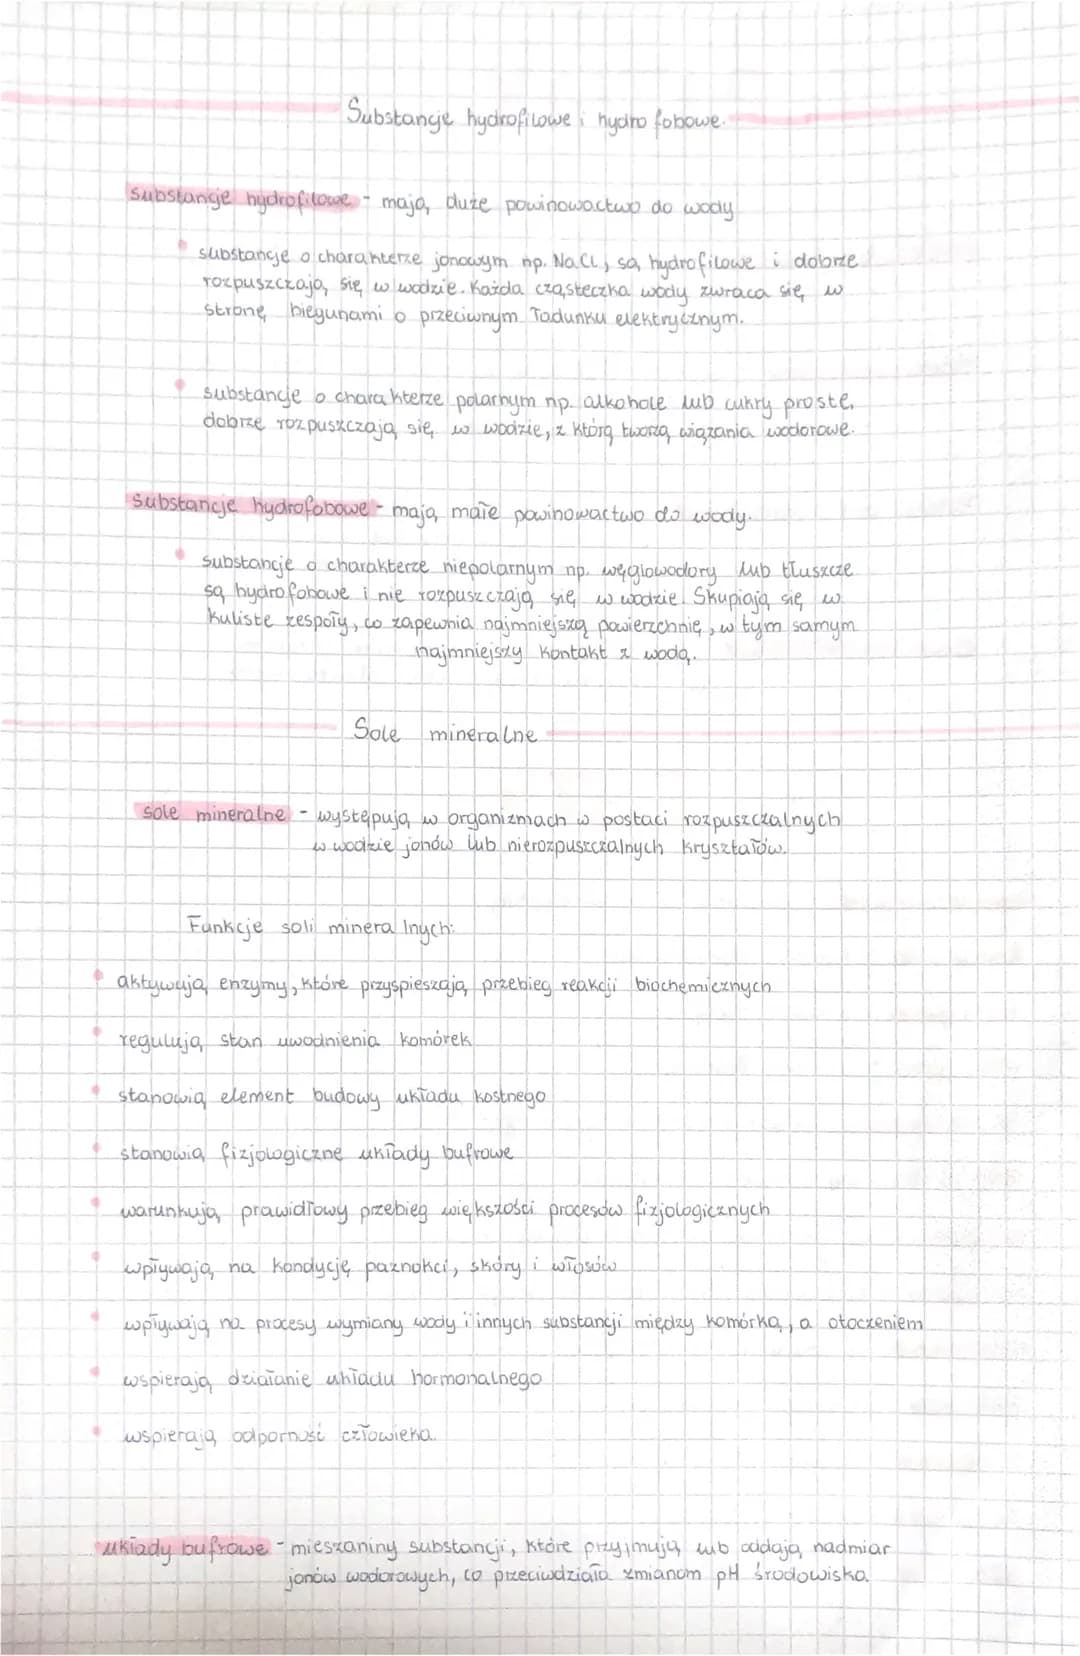 Substancje hydrofilowe i hydrofobowe.
substancje hydrofilowe - mają duże powinowactwo do wody
substancje o charakterze jonowym np. NaCl, są hydrofilowe i dobrze
rozpuszczają się w wodzie. Każda cząsteczka wody zwraca się w
stronę biegunami o przeciwnym ładunku elektrycznym.
substancje o charakterze polarnym np. alkohole lub cukry proste,
dobrze rozpuszczają się w wodzie, z którą tworzą wiązania wodorowe.
Substancje hydrofobowe - mają małe powinowactwo do wody.
substancje o charakterze niepolarnym np. węglowodory lub tłuszcze
są hydrofobowe i nie rozpuszczają się w wodzie. Skupiają się w
kuliste zespoły, co zapewnia najmniejszą powierzchnię, w tym samym
najmniejszy kontakt z wodą.
Sole mineralne
sole mineralne - występują w organizmach w postaci rozpuszczalnych
w wodzie jonów lub nierozpuszczalnych kryształów.
Funkcje soli mineralnych:
aktywują enzymy, które przyspieszają przebieg reakcji biochemicznych
regulują stan uwodnienia komórek
stanowią element budowy układu kostnego
stanowią fizjologiczne układy buforowe
warunkują prawidłowy przebieg większości procesów fizjologicznych
wpływają na kondycję paznokci, skóry i włosów
wpływają na procesy wymiany wody i innych substancji między komórką, a otoczeniem
wspierają działanie układu hormonalnego
wspierają odporność człowieka.
układy bufrowe - mieszaniny substancji, które przyjmują lub oddają nadmiar
jonów wodorowych, co przeciwdziała zmianom pH środowiska.